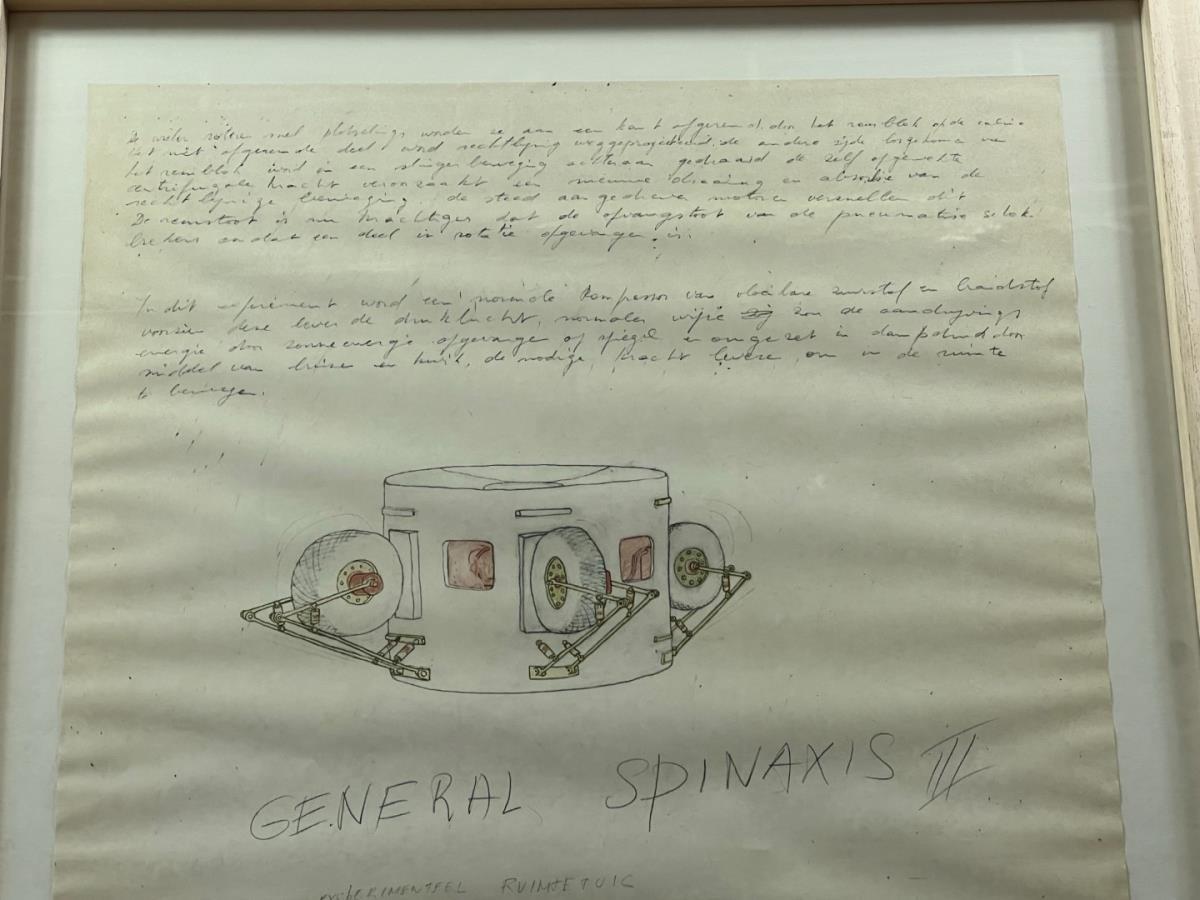 wielen roteren snel plotselings worden ze aan een kant afgeremd door het remblok op de cabine
Het niet afgeremde deel word rechtlijnig weggeprojecteerd, de andere zijde losgekomen van
het remblok word in een slingerbeweging achteraan gedraaid de zelf opgewekte
centrifugale kracht veroorzaakt een nieuwe draaiing en absorbsie van de
rechtlijnige beweging, de steed aangedreven motoren versnellen dit
De remstoot is nu krachtiger dat de opvangstoot van de pneumatise schok
brekers omdat een deel in rotatie opgevangen is.
In dit experiment word een normale kompressor van vloeibare zuurstof en brandstof
voorzien deze lever de druklucht, normaler wijze zou de aandrijvings
energie door zonneenergie opgevangen of spiegel en omgezet in dampdruk door
middel van buizen en kwik, de nodige kracht levere, om in de ruimte
te bewegen.
GENERAL SPINAXIS III
EXPERIMENTEEL RUIMTETUIG